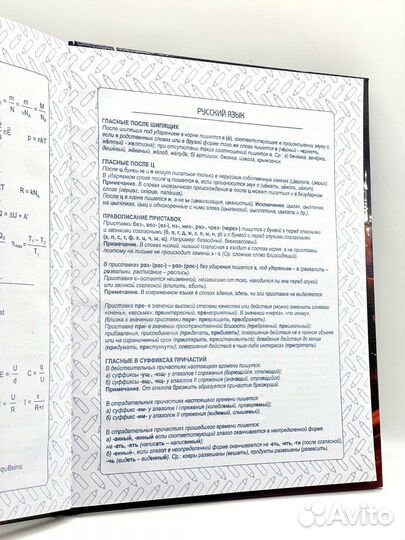 РУССКИЙ ЯЗЫК
ГЛАСНЫЕ ПОСЛЕ ШИПЯЩИХ
После шипящих под ударением в корне пишется е (ё), соответствующее в произношении звуку о,
если в родственных словах или в другой форме того же слова пишется е (чёрный - чернеть,
жёлтый - желтизна); при отсутствии таких соотношений пишется о. Ср.: а) бечёвка, вечёрка,
дешёвый, жёваный, жёлоб, жёлудь; б) артишок, джонка, изжога, крыжовник.
ГЛАСНЫЕ ПОСЛЕ Ц
После ц буквы ю и я могут писаться только в нерусских собственных именах (Цюрупа, Цюрих).
В ударяемом слоге после ц пишется о, если произносится звук о (цокать, цоколь, цокот).
Примечание. В словах иноязычного происхождения о после ц может писаться и в безударном
слоге (герцог, скерцо, палаццо).
После ц в корне пишется и, а не ы (цивилизация, цианистый). Исключения: цыган, цыпленок,
на цыпочках, цыц и однокоренные с ними слова (цыганский, цыплятина, цыкать и др.)
ПРАВОПИСАНИЕ ПРИСТАВОК
Приставки без-, воз- (вз-), из-, низ-, раз-, чрез- (через-) пишутся с з перед гласными
и звонкими согласными (б, в, г, д, ж, з, л, м, н, р) и с буквой с перед глухими согласными
(к, п, с, т, ф, х, ц, ч, ш, щ). Например: безводный, бесклассовый.
Примечание. В словах низкий, низший согласная з входит в состав корня, а не приставки,
поэтому на письме не происходит замены з - с (Ср. сложное слово близсидящий).
В приставках раз- (рас-) – роз- (рос-) без ударения пишется а, под ударением – о (развалить –
розвальни, расписание – роспись).
Приставка с- остается неизменной, независимо от того, находится ли она перед глухой
или звонкой согласной (спилить, сбить).
Примечание. В современном языке в словах здание, здесь, ни зги приставка не выделяется.
Приставка пре- в значении высокой степени качества или действия (можно заменить словами
«очень», «весьма»: преинтересный, препротивный). В значении «через», «по-иному»
(близка к значению приставки пере-: прекращать, преображать).
Приставка при- в значении пространственной близости (прибрежный, пришкольный);
прибавления, присоединения (приделать, прибавить); совершения действия не в полном объеме
или на ограниченный срок (приоткрыть, приостановиться); доведения действия до конца
(придумать, приступнуть); совершения действия в чьих-либо интересах (приберечь).
ГЛАСНЫЕ В СУФФИКСАХ ПРИЧАСТИЙ
В действительных причастиях настоящего времени пишется:
а) суффиксы -ущ-, -ющ- у глаголов I спряжения (борющийся, стелющий);
б) суффиксы -ащ-, -ящ- у глаголов II спряжения (значащий, строящий).
Примечание. От глагола брезжить образуется причастие брезжущий.
В страдательных причастиях настоящего времени пишется:
а) суффикс -ем- у глаголов I спряжения (колеблемый, проверяемый);
б) суффикс -им- у глаголов II спряжения (видимый, слышимый).
В страдательных причастиях прошедшего времени пишется:
а) -анный, -янный если соответствующий глагол в неопределенной форме оканчивается
на -ать, -ять (написать – написанный);
б) -енный-, если глагол в неопределенной форме оканчивается не на -еть, -ять, -ти (после согласной),
-чь (видеть – виденный). Ср.: ковры развешаны (вешать), продукты развешены (развесить).
Avito